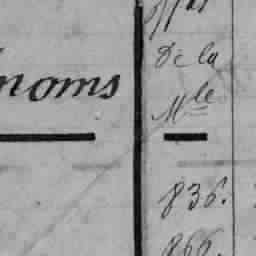 noms
De la
Mle
836.
866.